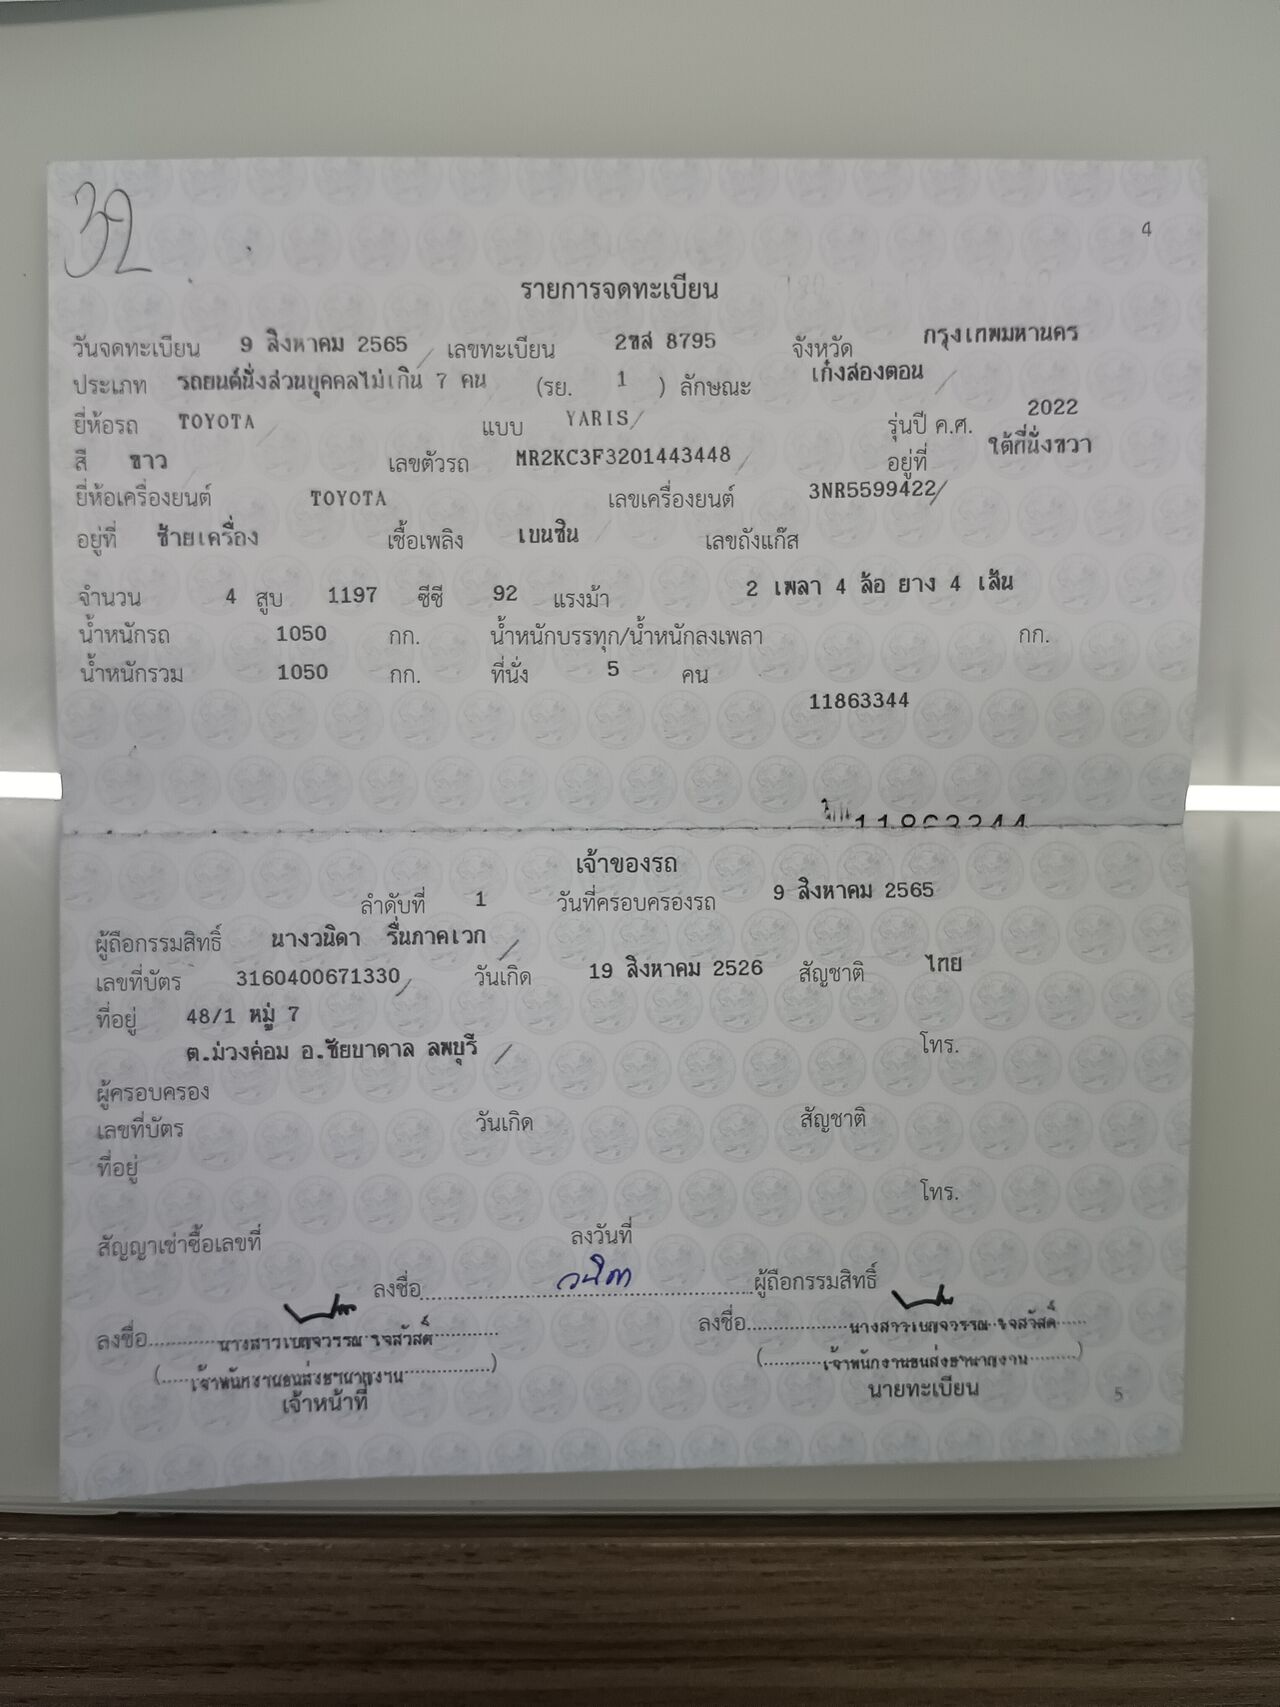 32
4
รายการจดทะเบียน
วันจดทะเบียน 9 สิงหาคม 2565 เลขทะเบียน 2ขส 8795 จังหวัด กรุงเทพมหานคร
ประเภท รถยนต์นั่งส่วนบุคคลไม่เกิน 7 คน (รย. 1 ) ลักษณะ เก๋งสองตอน
ยี่ห้อรถ TOYOTA แบบ YARIS รุ่นปี ค.ศ. 2022
สี ขาว เลขตัวรถ MR2KC3F3201443448 อยู่ที่ ใต้ที่นั่งขวา
ยี่ห้อเครื่องยนต์ TOYOTA เลขเครื่องยนต์ 3NR5599422
อยู่ที่ ซ้ายเครื่อง เชื้อเพลิง เบนซิน เลขถังแก๊ส
จำนวน 4 สูบ 1197 ซีซี 92 แรงม้า 2 เพลา 4 ล้อ ยาง 4 เส้น
น้ำหนักรถ 1050 กก. น้ำหนักบรรทุก/น้ำหนักลงเพลา กก.
น้ำหนักรวม 1050 กก. ที่นั่ง 5 คน
11863344
11863344
เจ้าของรถ
ลำดับที่ 1 วันที่ครอบครองรถ 9 สิงหาคม 2565
ผู้ถือกรรมสิทธิ์ นางวนิดา รื่นภาคเวก
เลขที่บัตร 3160400671330 วันเกิด 19 สิงหาคม 2526 สัญชาติ ไทย
ที่อยู่ 48/1 หมู่ 7
ต.ม่วงค่อม อ.ชัยบาดาล ลพบุรี โทร.
ผู้ครอบครอง
เลขที่บัตร วันเกิด สัญชาติ
ที่อยู่
โทร.
สัญญาเช่าซื้อเลขที่ ลงวันที่
ลงชื่อ วนิดา ผู้ถือกรรมสิทธิ์
ลงชื่อ นางสาวเบญจวรรณ ใจสวัสดิ์ ลงชื่อ นางสาวเบญจวรรณ ใจสวัสดิ์
(เจ้าพนักงานขนส่งชำนาญงาน) (เจ้าพนักงานขนส่งชำนาญงาน)
เจ้าหน้าที่ นายทะเบียน
5